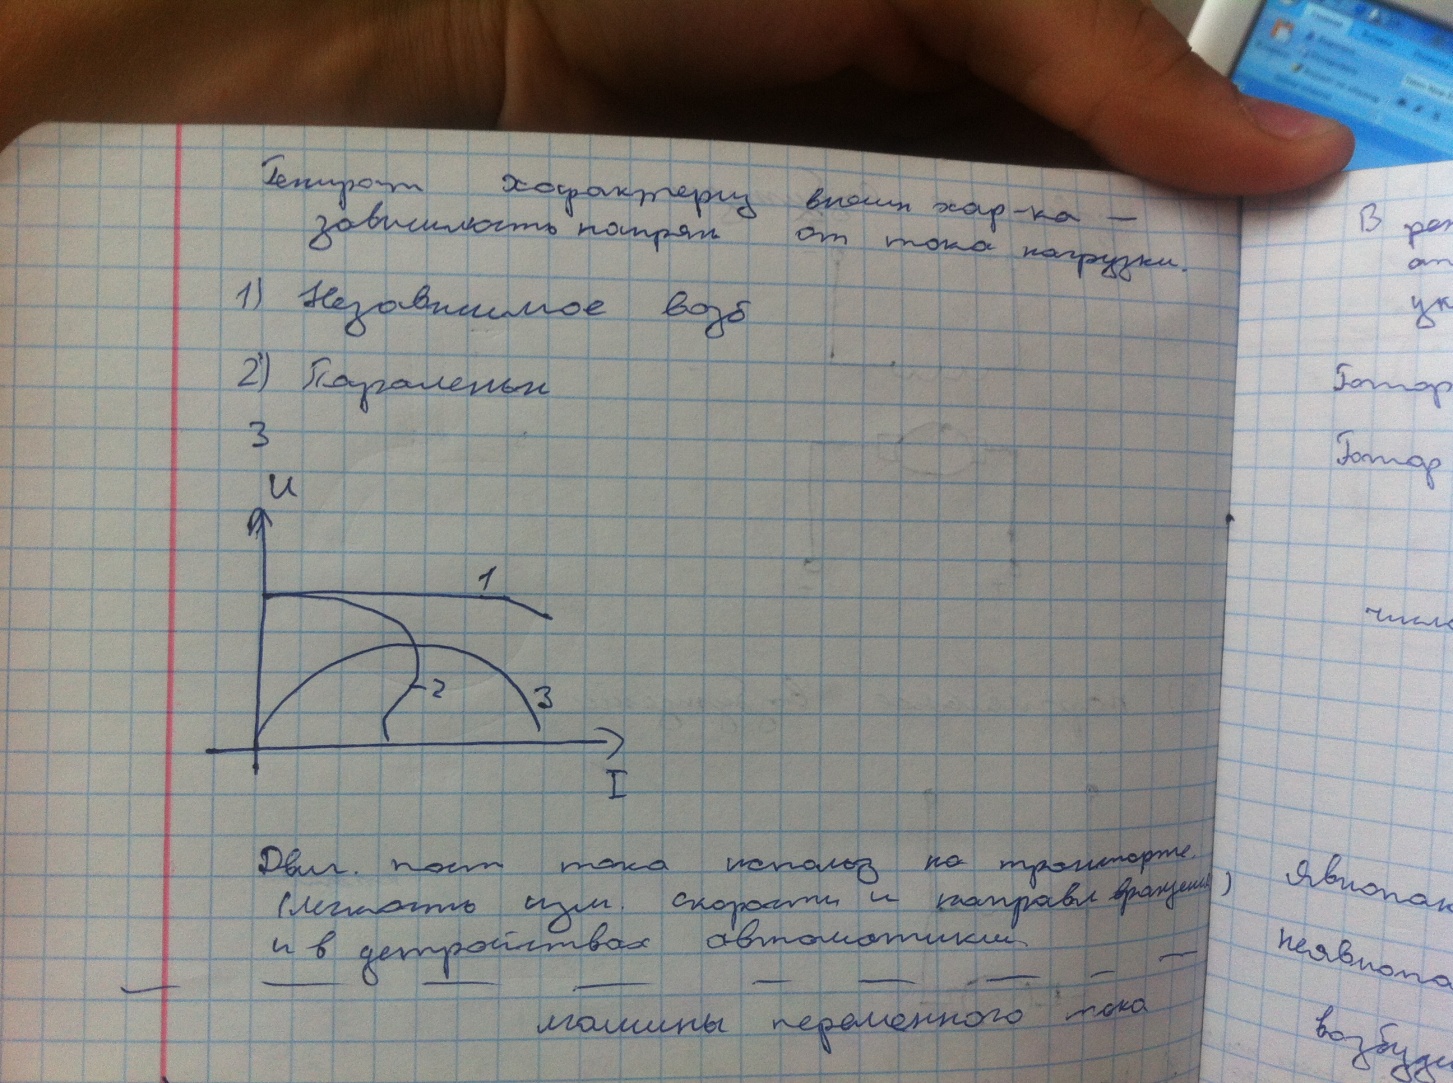 Генират характериз внешн хар-ка —
зависимость напряж от тока нагрузки.
1) Независимое возб
2) Паралельн
3
U
1
2
3
I
Двиг. пост тока использ на транспорте.
(легкость изм. скорости и направл вращения)
и в устройствах автоматики
машины переменного тока
В
ук
Ротор
Ротор
число
Явнопол
неявнопо
возбужд